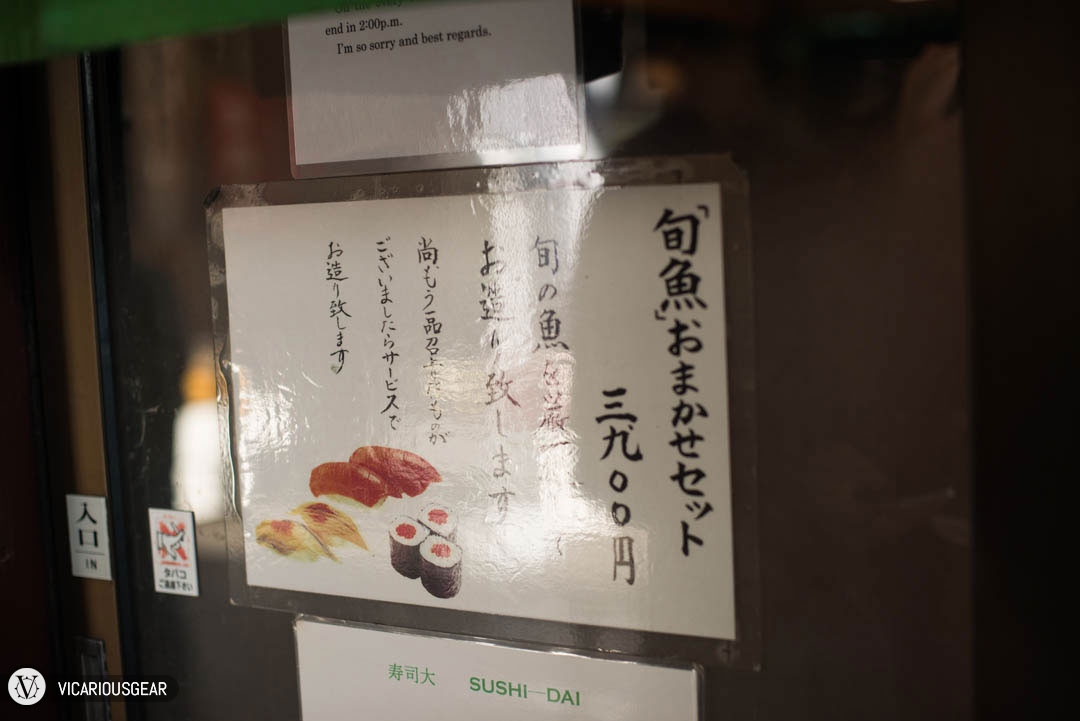 end in 2:00p.m.
I'm so sorry and best regards.
「旬魚」おまかせセット
三九〇〇円
旬の魚を厳
お造り致します
尚もう一品召上がたものが
ございましたらサービスで
お造り致します
入口
IN
タバコ
ご遠慮下さい
寿司大 SUSHI—DAI
VICARIOUSGEAR